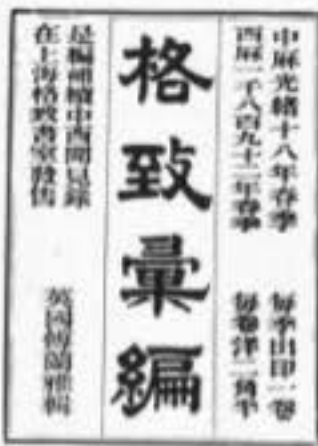 中厤光緒十八年春季
西厤一千八百九十二年春季
每季出印一卷
每卷洋二角半
格致彙編
是編補續中西聞見錄
在上海格致書室發售
英國傅蘭雅輯